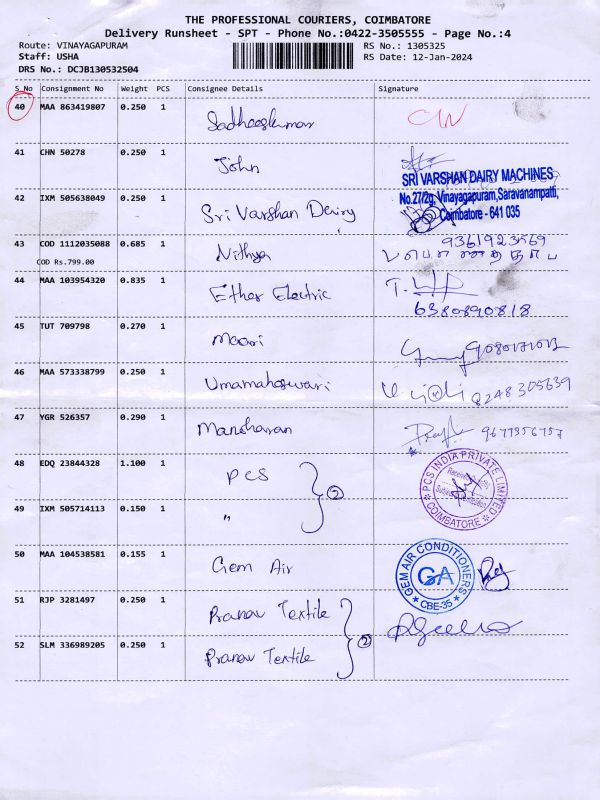 THE PROFESSIONAL COURIERS, COIMBATORE
Delivery Runsheet - SPT - Phone No.:0422-3505555 - Page No.:4
Route: VINAYAGAPURAM RS No.: 1305325
Staff: USHA RS Date: 12-Jan-2024
DRS No.: DCJB130532504
S_No Consignment No Weight PCS Consignee Details Signature
40 MAA 863419807 0.250 1 Sadheeskumar
41 CHN 50278 0.250 1 John
SRI VARSHAN DAIRY MACHINES
No.27/2g, Vinayagapuram, Saravanampatti,
Coimbatore - 641 035
42 IXM 505638049 0.250 1 Sri Varshan Dairy
43 COD 1112035088 0.685 1 Nithya 9361923569
COD Rs.799.00
44 MAA 103954320 0.835 1 Ether Electric
6380890818
45 TUT 709798 0.270 1 Moori
46 MAA 573338799 0.250 1 Umamaheswari 8248305639
47 YGR 526357 0.290 1 Manoharan 9677356757
48 EDQ 23844328 1.100 1 PCS
PCS INDIA PRIVATE LIMITED
COIMBATORE
2
49 IXM 505714113 0.150 1 "
50 MAA 104538581 0.155 1 Gem Air
GEM AIR CONDITIONERS
GA
CBE-35
51 RJP 3281497 0.250 1 Pranav Textile
2
52 SLM 336989205 0.250 1 Pranav Textile